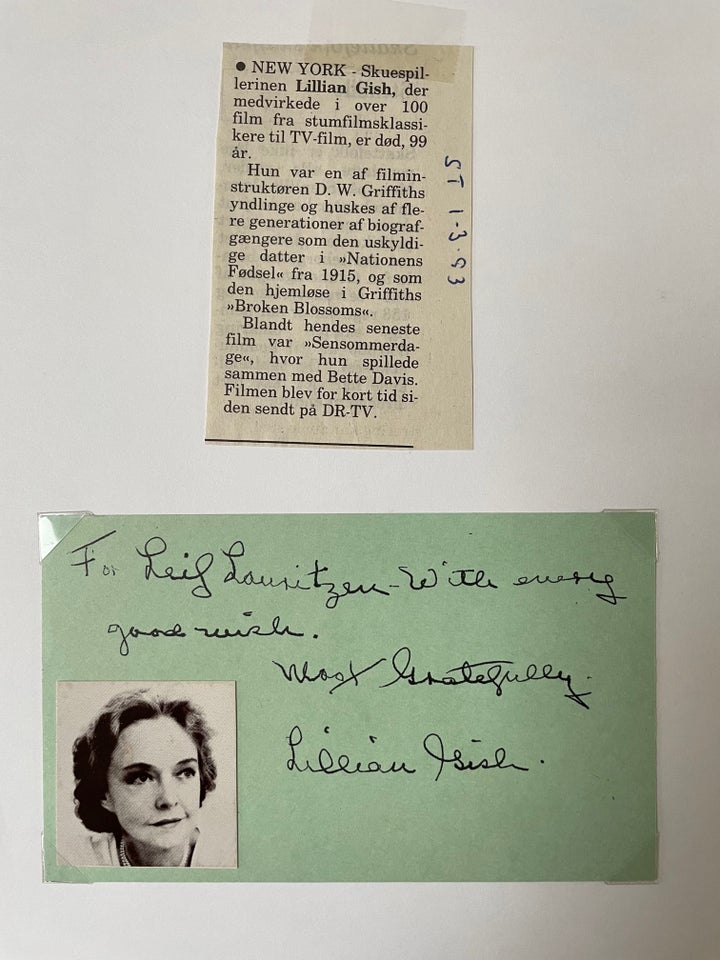 ● NEW YORK - Skuespil-
lerinen Lillian Gish, der
medvirkede i over 100
film fra stumfilmsklassi-
kere til TV-film, er død, 99
år.
Hun var en af filmin-
struktøren D. W. Griffiths
yndlinge og huskes af fle-
re generationer af biograf-
gængere som den uskyldi-
ge datter i »Nationens
Fødsel« fra 1915, og som
den hjemløse i Griffiths
»Broken Blossoms«.
Blandt hendes seneste
film var »Sensommerda-
ge«, hvor hun spillede
sammen med Bette Davis.
Filmen blev for kort tid si-
den sendt på DR-TV.
ST 1-3-93
For Leif Lauritzen - With every
good wish.
Most Gratefully.
Lillian Gish.